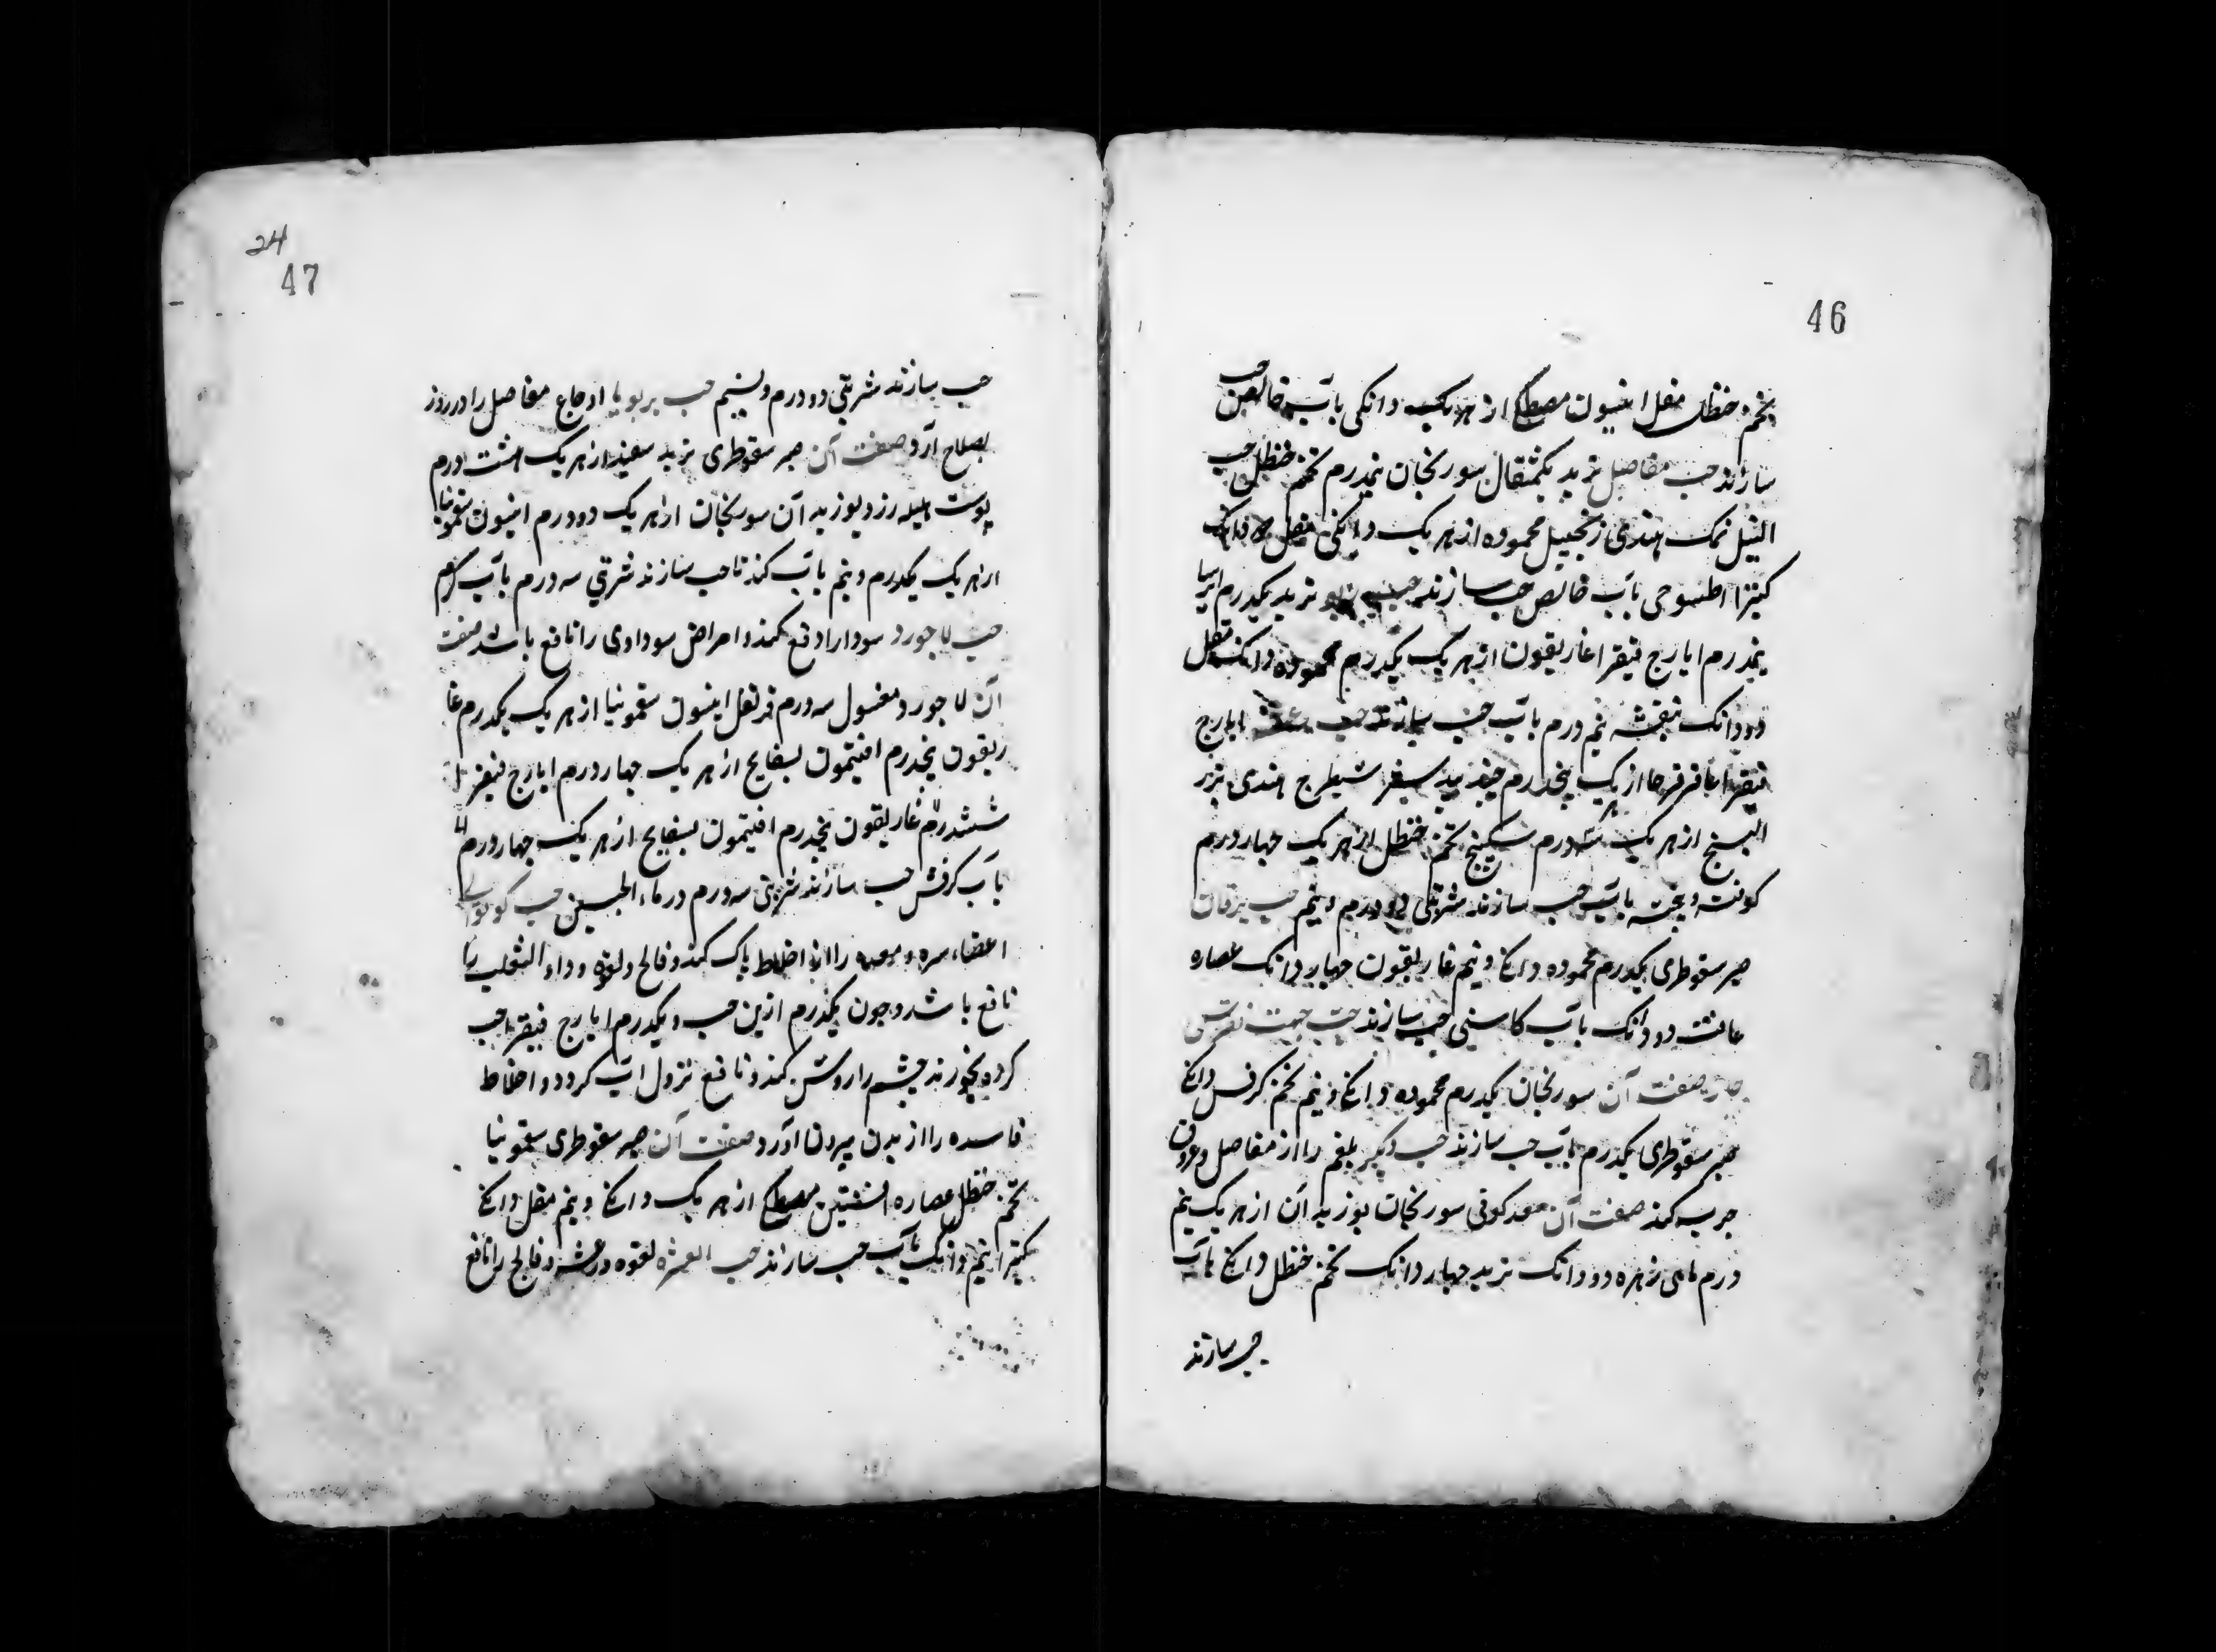 46
تخم حنظل مقل انیسون مصطکی از هر یک دانکی بآب خالص حب
سازند حب مفاصل تربد یکمثقال سورنجان نیمدرم تخم حنظل حب
النیل نمک هندی زنجبیل محموده از هر یک دانکی مقل دانک
کتیرا طسوجی بآب خالص حب سازند تربد یکدرم ایرسا
نیمدرم ایارج فیقرا غاریقون از هر یک یکدرم محموده دانک مقل
دو دانک بنفشه نیم درم بآب حب سازند حب ایارج
فیقرا عاقرقرحا از هر یک پنجدرم جندبیدستر شیطرج هندی بزر
البنج از هر یک سه درم سکبینج تخم حنظل از هر یک چهار درم
کوفته و بیخته بآب حب سازند شربتی دو درم و نیم حب یرقان
صبر سقوطری یکدرم محموده دانکی و نیم غاریقون چهار دانک عصاره
غافث دو دانک بآب کاسنی حب سازند حب جهت نقرس
حار صفت آن سورنجان یکدرم محموده دانکی و نیم تخم کرفس دانکی
صبر سقوطری یکدرم بآب حب سازند حب دیکر بلغم را از مفاصل و عروق
جرب کند صفت آن سعد کوفی سورنجان بوزیدان از هر یک نیم
درم ماهی زهره دو دانک تربد چهار دانک تخم حنظل دانکی بآب
حب سازند
24
47
حب سازند شربتی دو درم و نیم حب اوجاع مفاصل را در روز
بصلاح آرد صفت آن صبر سقوطری تربد سفید از هر یک هشت درم
پوست هلیله زرد بوزیدان سورنجان از هر یک دو درم انیسون سقمونیا
از هر یک یکدرم و نیم بآب کندنا حب سازند شربتی سه درم بآب گرم
حب لاجورد سودا را دفع کند و امراض سوداوی را نافع باشد صفت
آن لاجورد مغسول سه درم قرنفل انیسون سقمونیا از هر یک یکدرم غا
ریقون پنجدرم افتیمون بسفایج از هر یک چهار درم ایارج فیقرا
ششدرم غاریقون پنجدرم افتیمون بسفایج از هر یک چهار درم
بآب کرفس حب سازند شربتی سه درم در ماء الجبن حب
اعضاء سر و معده را از اخلاط پاک کند و فالج و لقوه و داء الثعلب را
نافع باشد و چون یکدرم ازین حب و یکدرم ایارج فیقرا حب
کرده بخورند چشم را روشن کند و نافع نزول آب کردد و اخلاط
فاسده را از بدن بیرون آورد صفت آن صبر سقوطری سقمونیا
تخم حنظل عصاره افسنتین مصطکی از هر یک دانکی و نیم مقل دانکی
کتیرا نیم دانک بآب حب سازند حب لقوه و رعشه و فالج را نافع